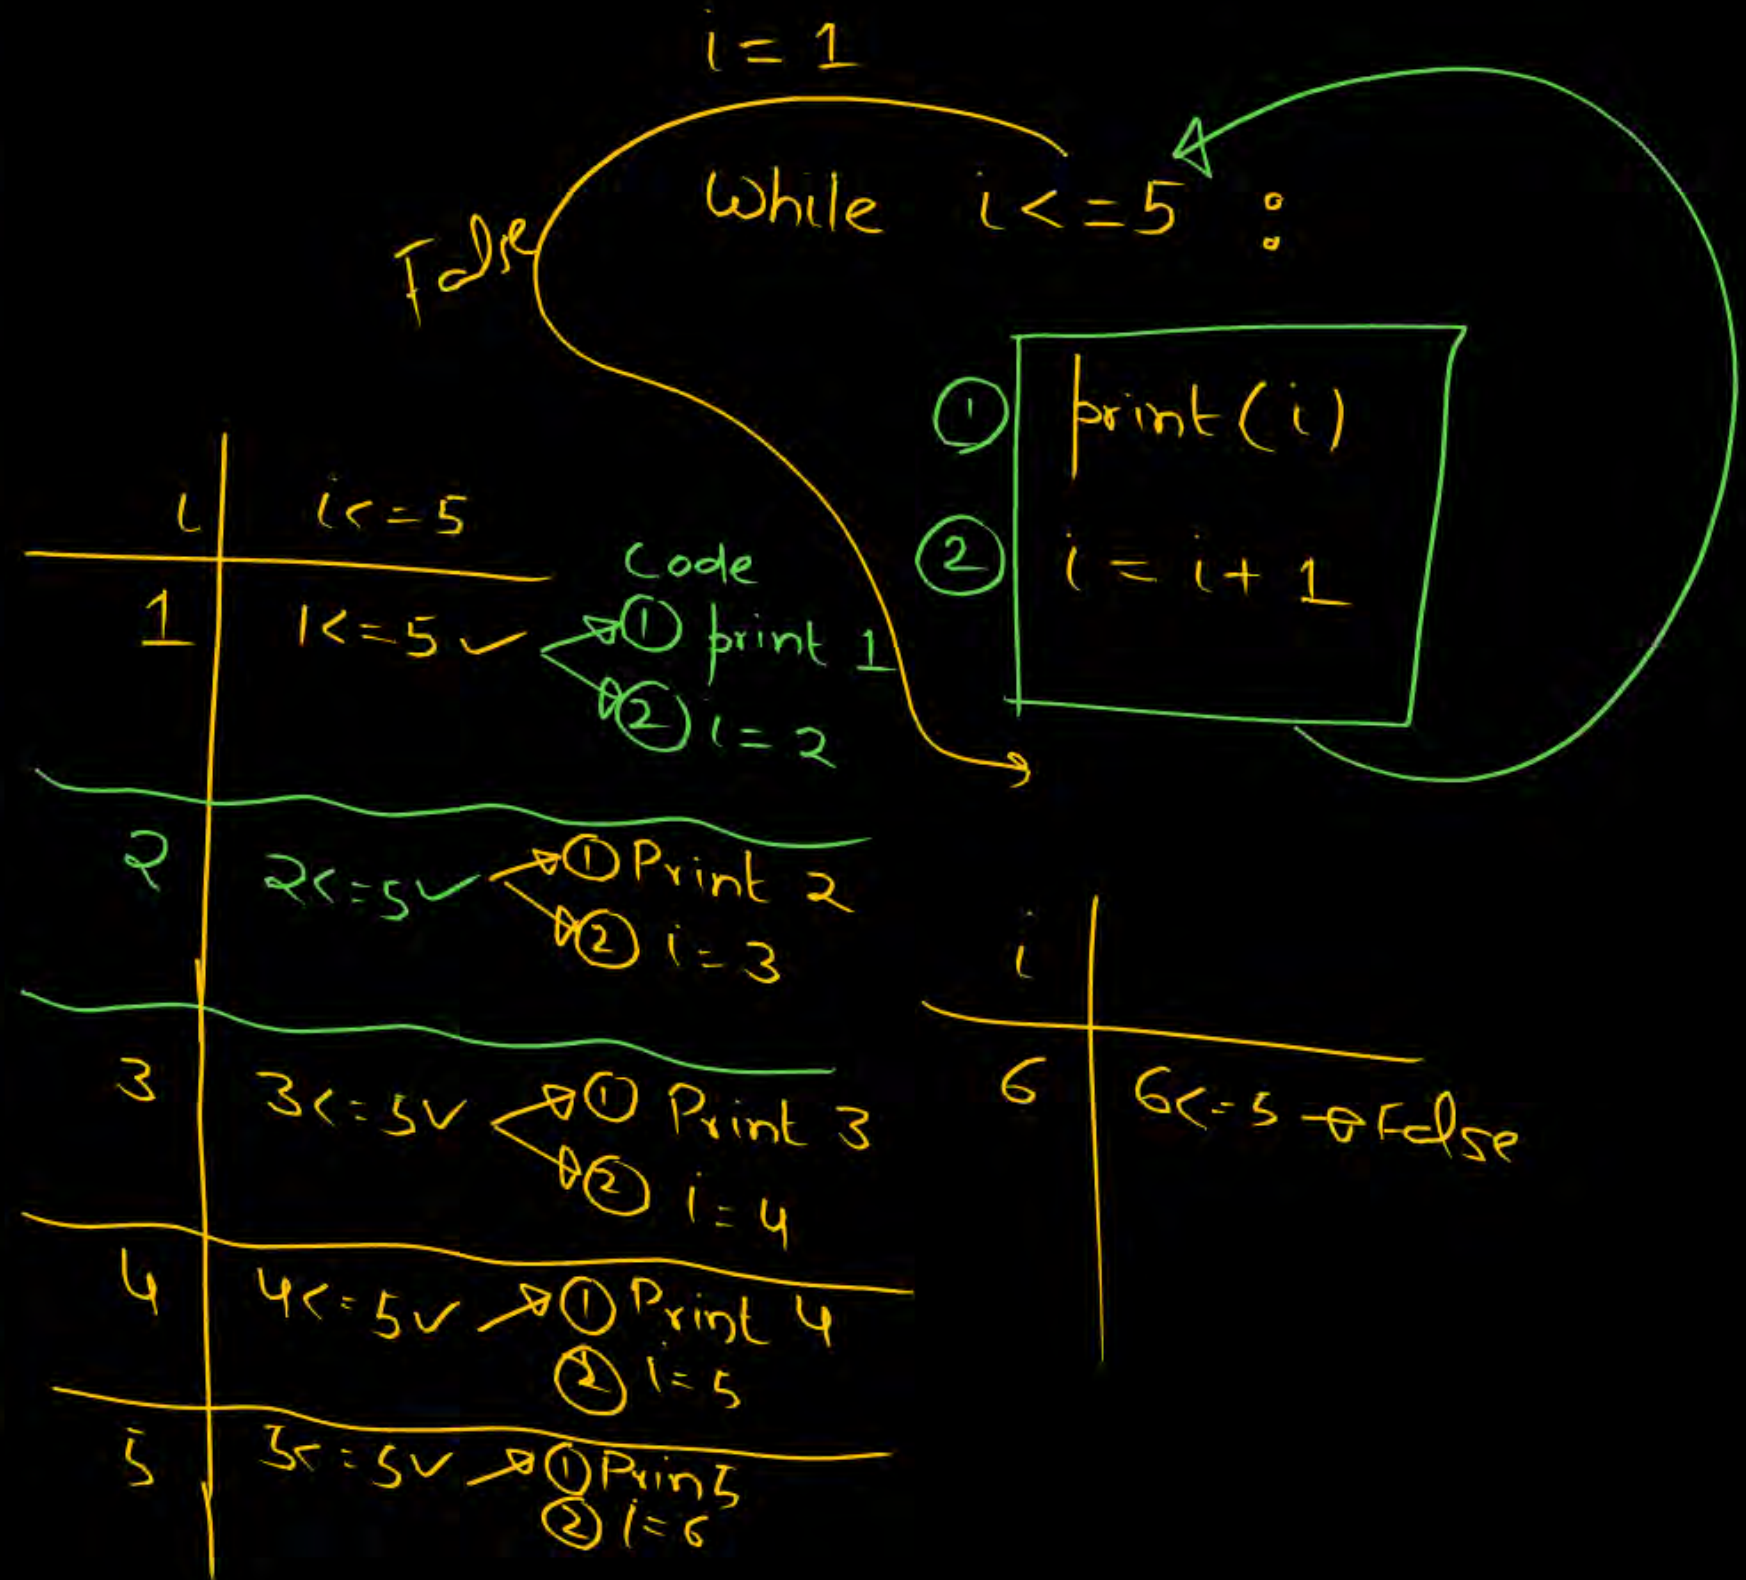 i = 1
While i <= 5 :
False
① print(i)
② i = i + 1
i i <= 5
Code
1 1 <= 5 ✓ ① print 1
② i = 2
2 2 <= 5 ✓ ① Print 2
② i = 3
3 3 <= 5 ✓ ① Print 3
② i = 4
4 4 <= 5 ✓ ① Print 4
② i = 5
5 5 <= 5 ✓ ① Prin 5
② i = 6
i
6 6 <= 5 → False